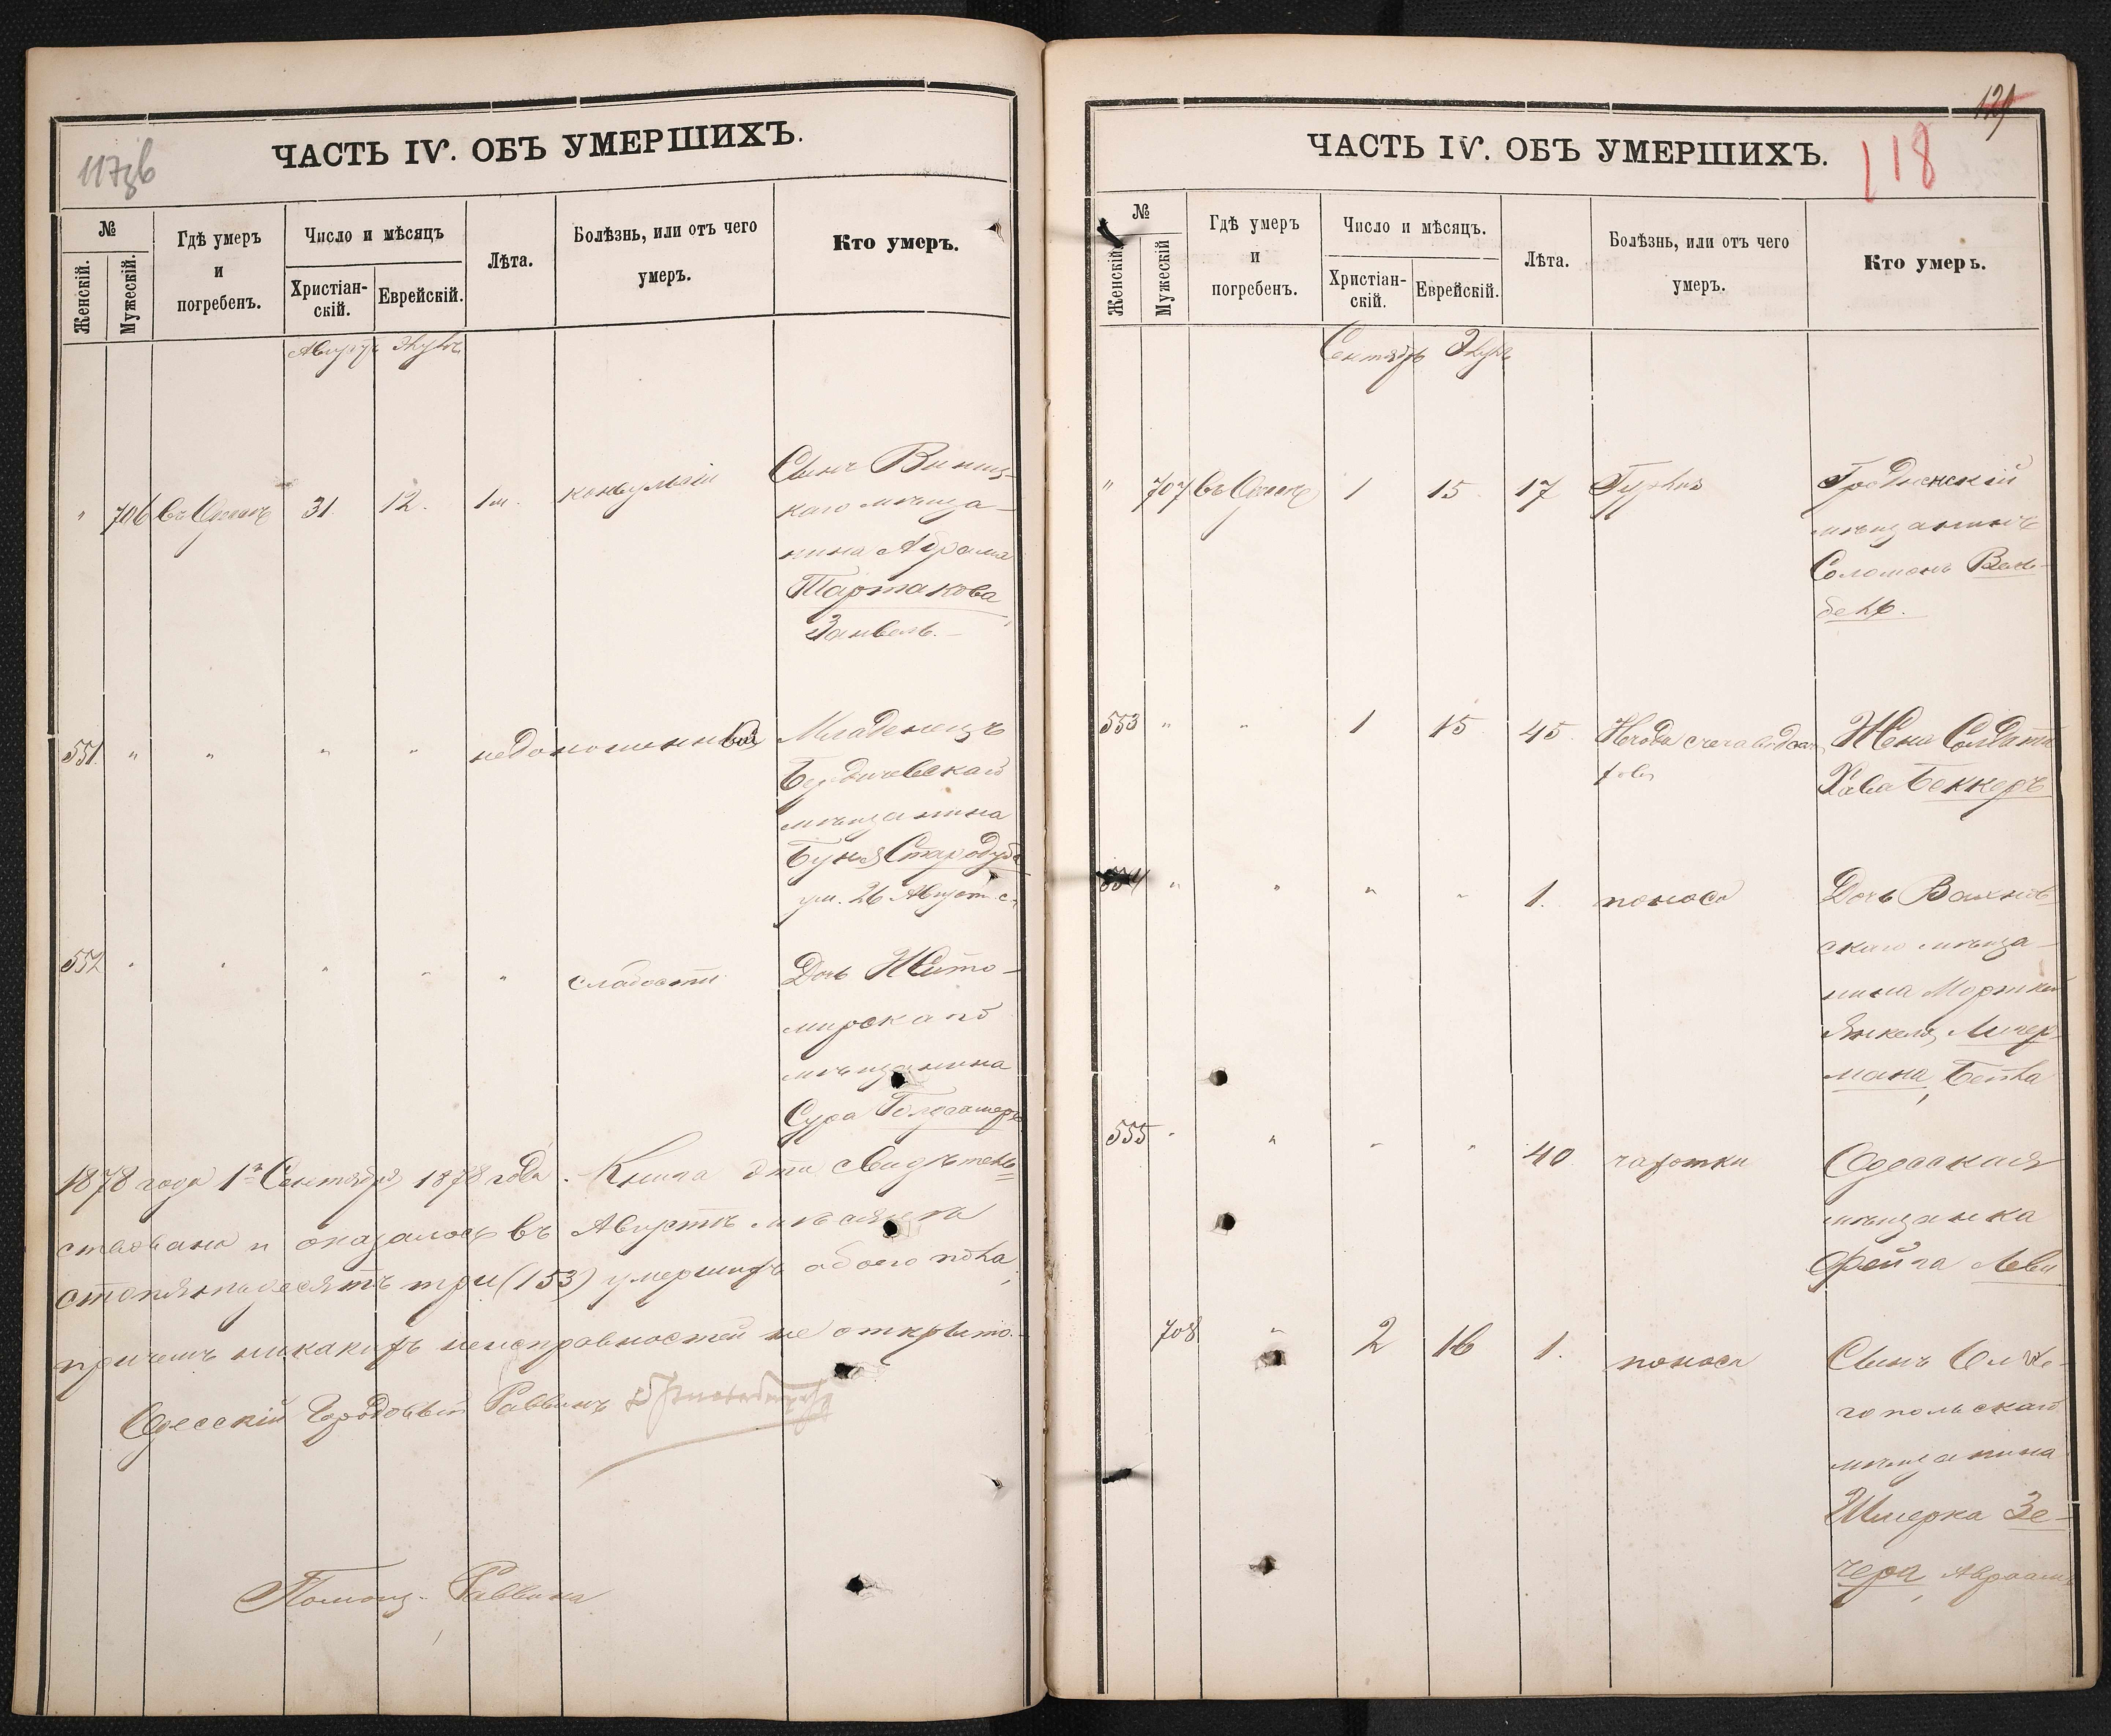 117зв
ЧАСТЬ IV. ОБЪ УМЕРШИХЪ.
№
Женскій.
Мужескій.
Гдѣ умеръ
и
погребенъ.
Число и мѣсяцъ
Христіан-
скій.
Еврейскій.
Лѣта.
Болѣзнь, или отъ чего
умеръ.
Кто умеръ.
Августъ Элулъ
" 706 въ Одессѣ 31. 12. 1 м. конвульсіи Сынъ Винниц-
каго мѣща-
нина Абрама
Тартакова,
Занвель.
551. " " " " недоношенный Младенецъ
Бердичевскаго
мѣщанина
Стародуб
ум. 26 Август с.
552 " " " " " слабости Дочь Жито-
мірскаго
мѣщанина
Сура
1878 года 1го Сентября 1878 года. Книга эта свидѣтель-
ствована и оказалось въ Августѣ мѣсяцѣ
сто пятьдесятъ три (153) умершихъ обоего пола,
причемъ никакихъ неисправностей не открыто.
Одесскій Городовой Раввинъ
Помощ. Раввина
118
ЧАСТЬ IV. ОБЪ УМЕРШИХЪ.
№
Женскій.
Мужескій
Гдѣ умеръ
и
погребенъ.
Число и мѣсяцъ.
Христіан-
скій.
Еврейскій.
Лѣта.
Болѣзнь, или отъ чего
умеръ.
Кто умеръ.
Сентябрь Элулъ
" 707 въ Одессѣ 1 15 17 Тифъ Гродненскій
мѣщанинъ
Соломонъ
553 " " 1 15 45 Жена Солдата
Хава Беккеръ
554 " " " " 1. поноса Дочь Вахнов-
скаго мѣща-
нина
Янкеля Личер-
мана, Бейла
555 " " " " 40 чахотки Одесская
мѣщанка
Фейга Леви
708 " 2 16 1. поноса Сынъ Ольго-
польскаго
мѣщанина
Шмерка Зе-
чера, Авраамъ